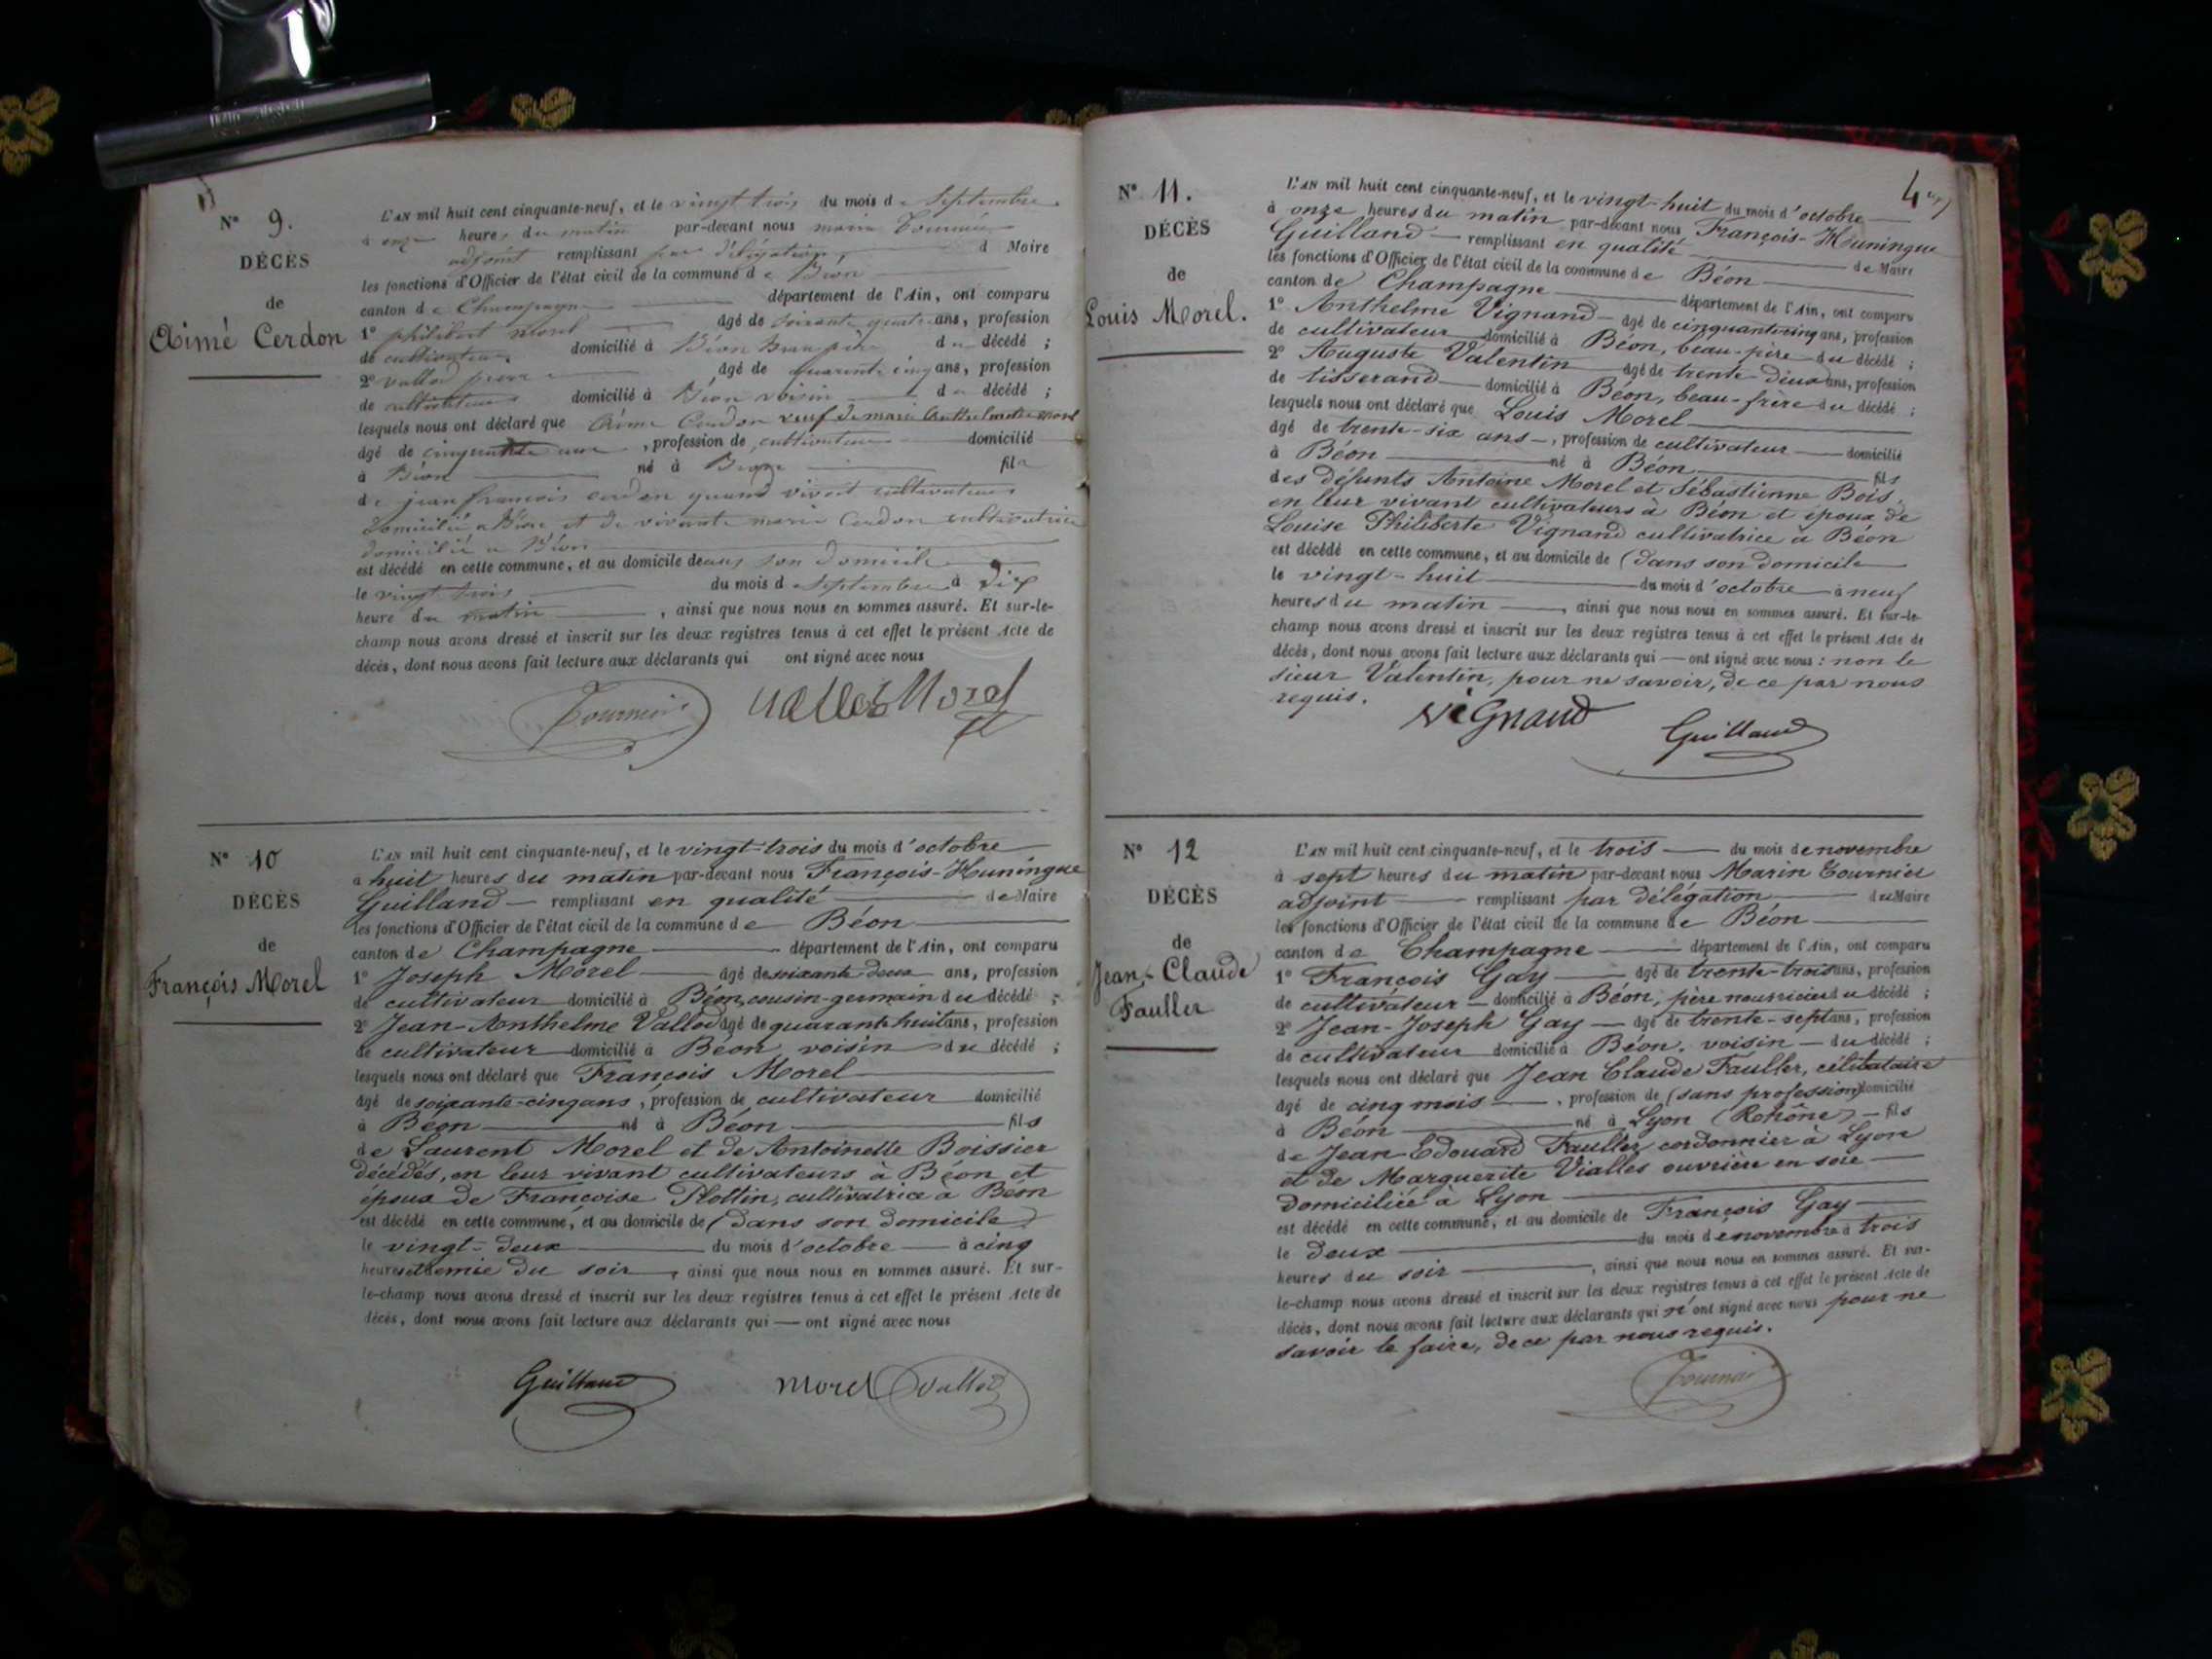 N° 9.
DÉCÈS
de
Aimé Cerdon
L'AN mil huit cent cinquante-neuf, et le vingt trois du mois de Septembre
à onze heures du matin par-devant nous marin Tournier
adjoint remplissant par délégation, d Maire
les fonctions d'Officier de l'état civil de la commune de Béon
canton de Champagne département de l'Ain, ont comparu
1° philibert morel âgé de soixante quatre ans, profession
de cultivateur domicilié à Béon Beau père du décédé ;
2° vallod pierre âgé de quarente cinq ans, profession
de cultivateur domicilié à Béon voisin du décédé ;
lesquels nous ont déclaré que Aimé Cerdon veuf de marie Anthelmette morel
âgé de cinquante , profession de cultivateur domicilié
à Béon né à Béon fils
de jean françois cerdon quand vivoit cultivateur
domicilié a Béon et de vivante marie Cerdon cultivatrice
domicilié a Béon
est décédé en cette commune, et au domicile de son domicile
le vingt trois du mois d septembre à dix
heure du matin , ainsi que nous nous en sommes assuré. Et sur-le-
champ nous avons dressé et inscrit sur les deux registres tenus à cet effet le présent Acte de
décès, dont nous avons fait lecture aux déclarants qui ont signé avec nous
Tournier Vallod Morel
N° 10
DÉCÈS
de
François Morel
L'AN mil huit cent cinquante-neuf, et le vingt-trois du mois d'octobre
à huit heures du matin par-devant nous François-Huningue
Guilland — remplissant en qualité de Maire
les fonctions d'Officier de l'état civil de la commune de Béon
canton de Champagne département de l'Ain, ont comparu
1° Joseph Morel âgé de soixante deux ans, profession
de cultivateur domicilié à Béon, cousin-germain du décédé ;
2° Jean-Anthelme Vallod âgé de quarante huit ans, profession
de cultivateur domicilié à Béon voisin du décédé ;
lesquels nous ont déclaré que François Morel
âgé de soixante-cinq ans, profession de cultivateur domicilié
à Béon né à Béon fils
de Laurent Morel et de Antoinette Boissier
décédés, en leur vivant cultivateurs à Béon et
époux de Françoise Plottin, cultivatrice à Béon
est décédé en cette commune, et au domicile de (dans son domicile)
le vingt-deux du mois d'octobre à cinq
heures et demie du soir, ainsi que nous nous en sommes assuré. Et sur-
le-champ nous avons dressé et inscrit sur les deux registres tenus à cet effet le présent Acte de
décès, dont nous avons fait lecture aux déclarants qui — ont signé avec nous
Guilland Morel Vallod
N° 11.
DÉCÈS
de
Louis Morel.
4
L'AN mil huit cent cinquante-neuf, et le vingt-huit du mois d'octobre
à onze heures du matin par-devant nous François-Huningue
Guilland — remplissant en qualité de Maire
les fonctions d'Officier de l'état civil de la commune de Béon
canton de Champagne département de l'Ain, ont comparu
1° Anthelme Vignand — âgé de cinquante cinq ans, profession
de cultivateur domicilié à Béon, beau-père du décédé ;
2° Auguste Valentin âgé de trente-deux ans, profession
de tisserand domicilié à Béon, beau-frère du décédé ;
lesquels nous ont déclaré que Louis Morel
âgé de trente-six ans —, profession de cultivateur domicilié
à Béon né à Béon fils
des défunts Antoine Morel et Sébastienne Bois,
en leur vivant cultivateurs à Béon et époux de
Louise Philiberte Vignand cultivatrice à Béon
est décédé en cette commune, et au domicile de (dans son domicile
le vingt-huit du mois d'octobre à neuf
heures du matin —, ainsi que nous nous en sommes assuré. Et sur-le-
champ nous avons dressé et inscrit sur les deux registres tenus à cet effet le présent Acte de
décès, dont nous avons fait lecture aux déclarants qui — ont signé avec nous : non le
sieur Valentin, pour ne savoir, de ce par nous
requis.
viGnand Guilland
N° 12
DÉCÈS
de
Jean-Claude
Fauller
L'AN mil huit cent cinquante-neuf, et le trois — du mois de novembre
à sept heures du matin par-devant nous Marin Tournier
adjoint remplissant par délégation du Maire
les fonctions d'Officier de l'état civil de la commune de Béon
canton de Champagne département de l'Ain, ont comparu
1° François Gay âgé de trente-trois ans, profession
de cultivateur — domicilié à Béon, père nourricier du décédé ;
2° Jean-Joseph Gay — âgé de trente-sept ans, profession
de cultivateur domicilié à Béon, voisin — du décédé ;
lesquels nous ont déclaré que Jean Claude Fauller, célibataire
âgé de cinq mois —, profession de (sans profession) domicilié
à Béon né à Lyon (Rohône) — fils
de Jean-Edouard Fauller cordonnier à Lyon
et de Marguerite Vialles ouvrière en soie
domiciliée à Lyon
est décédé en cette commune, et au domicile de François Gay
le deux du mois de novembre à trois
heures du soir —, ainsi que nous nous en sommes assuré. Et sur-
le-champ nous avons dressé et inscrit sur les deux registres tenus à cet effet le présent Acte de
décès, dont nous avons fait lecture aux déclarants qui n'ont signé avec nous pour ne
savoir le faire, de ce par nous requis.
Tournier